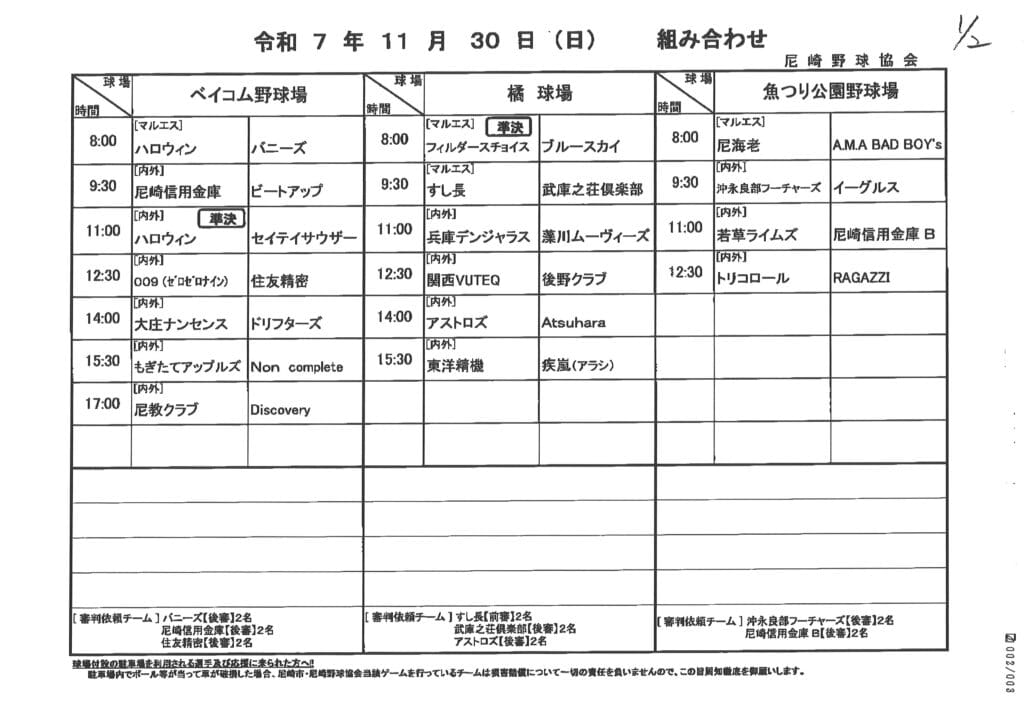 令和 7 年 11 月 30 日（日） 組み合わせ
1/2
尼崎野球協会
球場 時間 ベイコム野球場 球場 時間 橘 球場 球場 時間 魚つり公園野球場
8:00 [マルエス] ハロウィン バニーズ 8:00 [マルエス] 準決 フィルダースチョイス ブルースカイ 8:00 [マルエス] 尼海老 A.M.A BAD BOY's
9:30 [内外] 尼崎信用金庫 ビートアップ 9:30 [マルエス] すし長 武庫之荘倶楽部 9:30 [内外] 沖永良部フーチャーズ イーグルス
11:00 [内外] 準決 ハロウィン セイテイサウザー 11:00 [内外] 兵庫デンジャラス 藻川ムーヴィーズ 11:00 [内外] 若草ライムズ 尼崎信用金庫 B
12:30 [内外] 009（ｾﾞﾛｾﾞﾛﾅｲﾝ） 住友精密 12:30 [内外] 関西VUTEQ 後野クラブ 12:30 [内外] トリコロール RAGAZZI
14:00 [内外] 大庄ナンセンス ドリフターズ 14:00 [内外] アストロズ Atsuhara
15:30 [内外] もぎたてアップルズ Non complete 15:30 [内外] 東洋精機 疾嵐（アラシ）
17:00 [内外] 尼教クラブ Discovery
[ 審判依頼チーム ] バニーズ【後審】2名
尼崎信用金庫【後審】2名
住友精密【後審】2名
[ 審判依頼チーム ] すし長【前審】2名
武庫之荘倶楽部【後審】2名
アストロズ【後審】2名
[ 審判依頼チーム ] 沖永良部フーチャーズ【後審】2名
尼崎信用金庫 B【後審】2名
球場付設の駐車場を利用される選手及び応援に来られた方へ!!
駐車場内でボール等が当って車が破損した場合、尼崎市・尼崎野球協会当該ゲームを行っているチームは損害賠償について一切の責任を負いませんので、この旨周知徹底を御願いします。
002/003